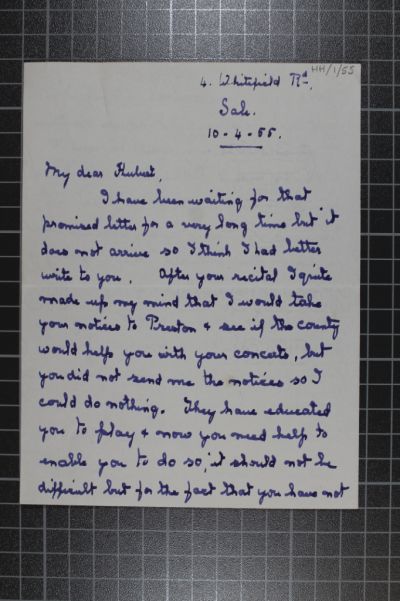 HH/1/55
4. Whitefield Rd.,
Sale.
10-4-55.
My dear Hubert,
I have been waiting for that
promised letter for a very long time but it
does not arrive so I think I had better
write to you. After your recital I quite
made up my mind that I would take
your notices to Preston & see if the county
would help you with your concerts, but
you did not send me the notices so I
could do nothing. They have educated
you to play & now you need help to
enable you to do so, it should not be
difficult but for the fact that you have not